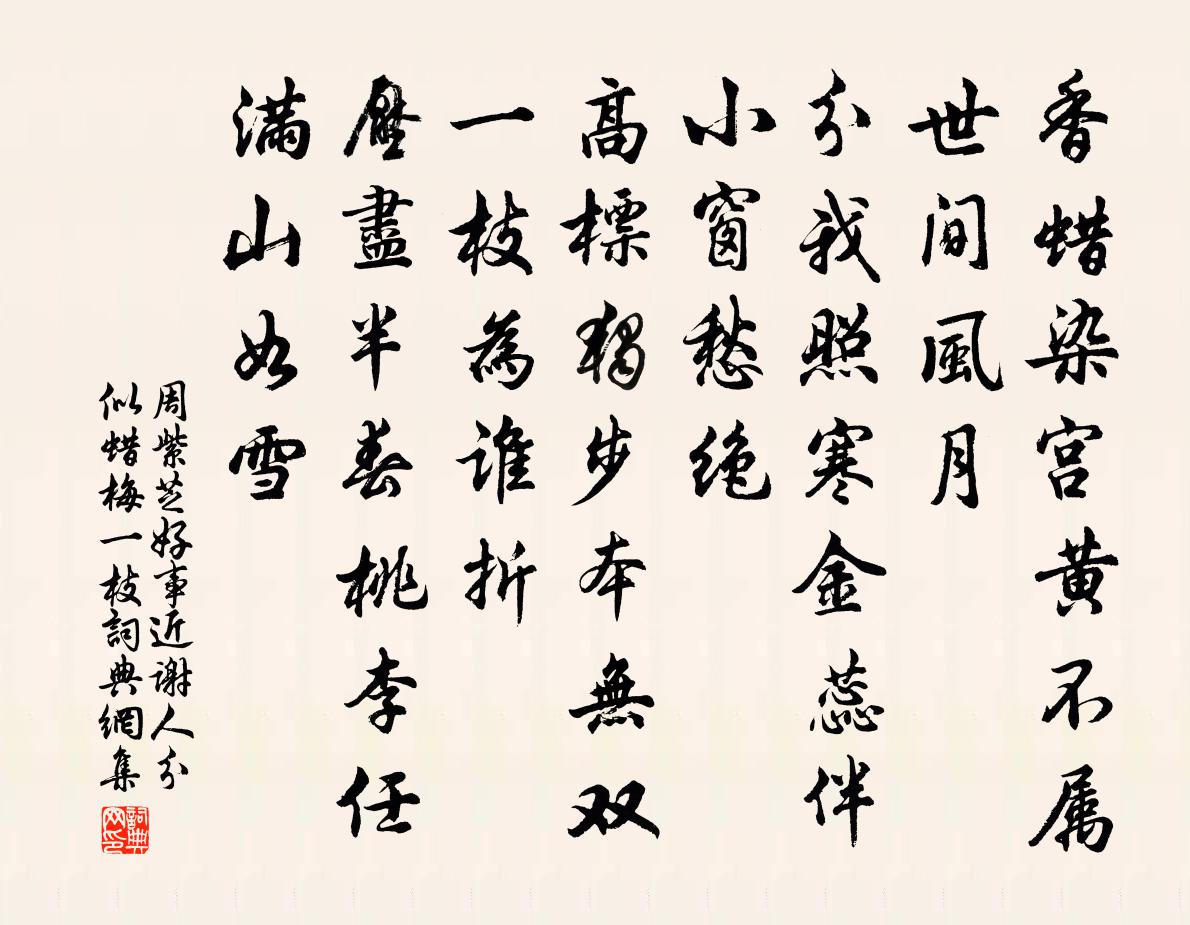 香蜡染宫黄不属
世间風月
分我照寒金蕊伴
小窗愁绝
高標獨步本無双
一枝為谁折
壓盡半春桃李任
满山如雪
周紫芝好事近谢人分
似蜡梅一枝詞典網集
詞典網印